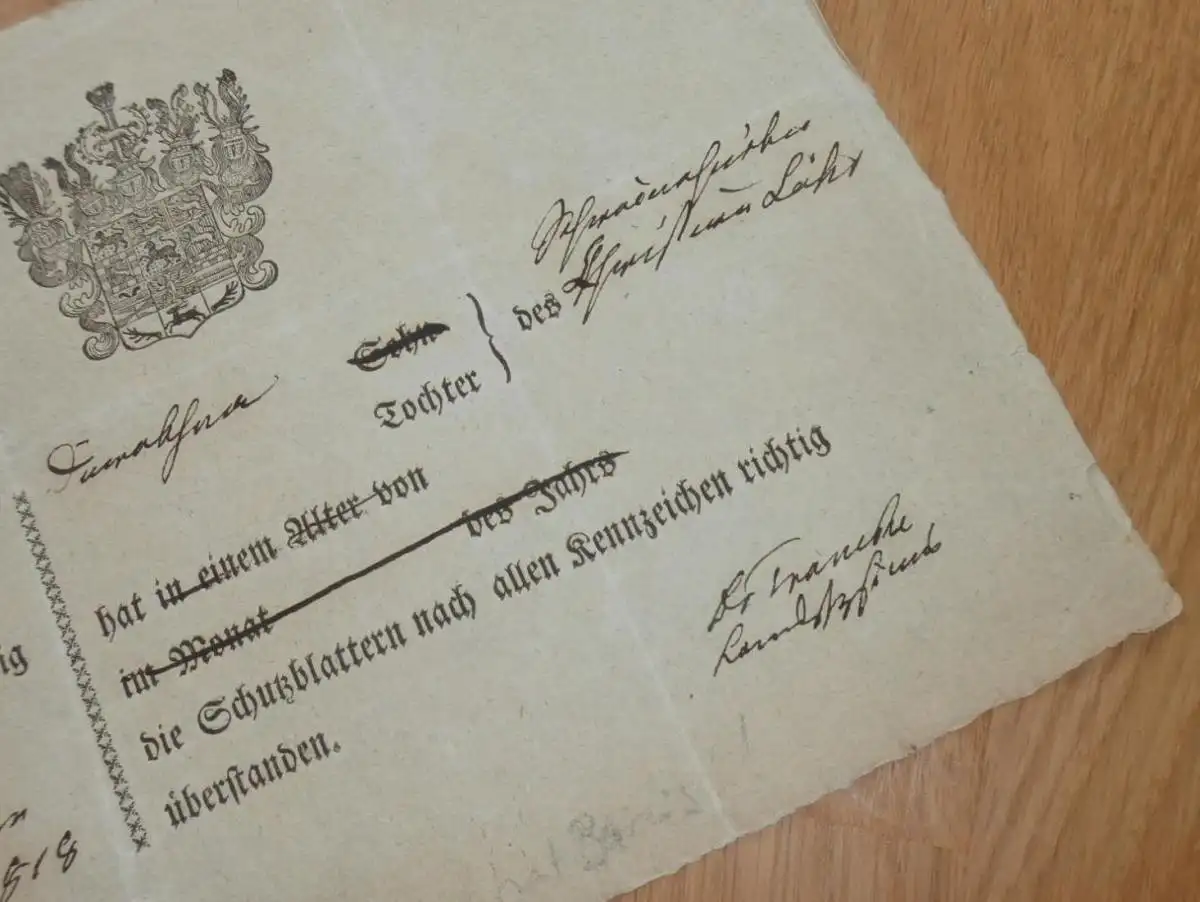 Schwanefelder
Christian Löhr
Sohn
Tochter } des
hat in einem Alter von
im Monat des Jahrs
die Schutzblattern nach allen Kennzeichen richtig
überstanden.
Dr Francke
Landphysicus
ig
1818